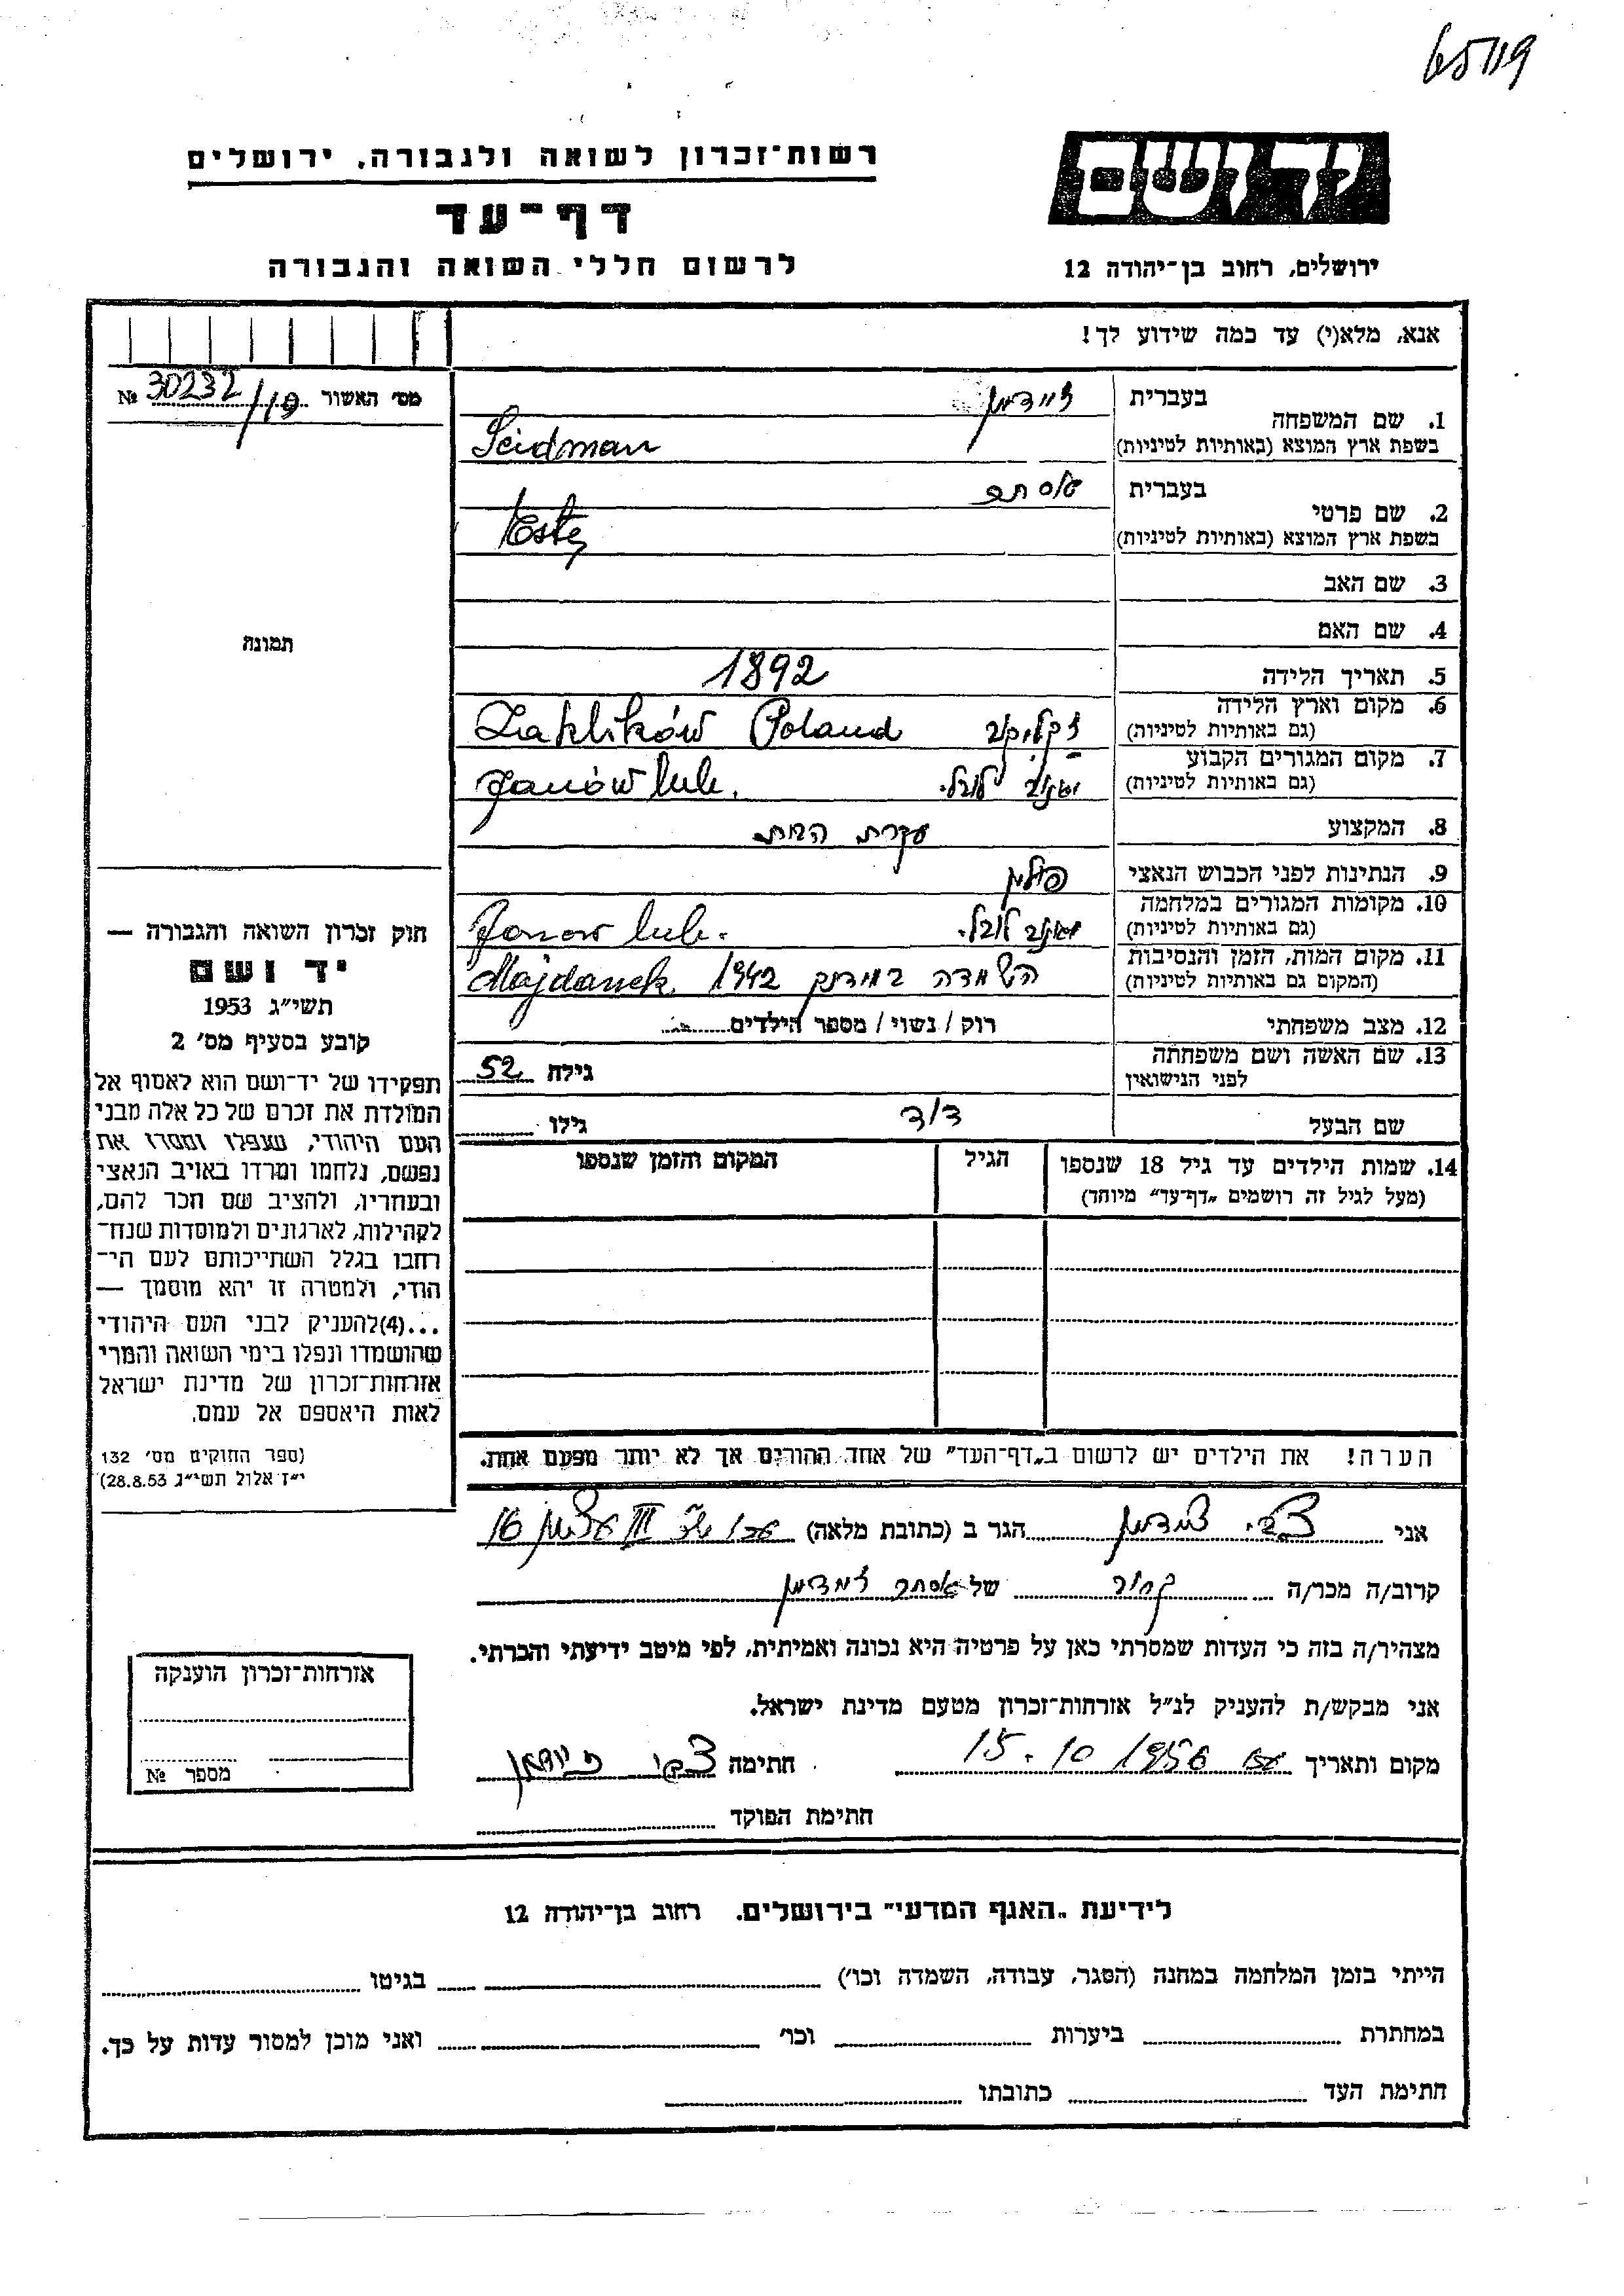 65119
יד ושם
ירושלים, רחוב בן־יהודה 12
רשות־זכרון לשואה ולגבורה, ירושלים
דף־עד
לרשום חללי השואה והגבורה
אנא, מלא(י) עד כמה שידוע לך!
מס׳ האשור 30232/19 №
תמונה
1. שם המשפחה
בעברית זיידמן
בשפת ארץ המוצא (באותיות לטיניות) Seidman
2. שם פרטי
בעברית אסתר
בשפת ארץ המוצא (באותיות לטיניות)
3. שם האב
4. שם האם
5. תאריך הלידה 1892
6. מקום וארץ הלידה זקליקוב Zaklików Poland
(גם באותיות לטיניות)
7. מקום המגורים הקבוע ינוב לובל. Janów lub.
(גם באותיות לטיניות)
8. המקצוע עקרת הבית
9. הנתינות לפני הכבוש הנאצי פולין
10. מקומות המגורים במלחמה ינוב לובל. Janow lub.
(גם באותיות לטיניות)
11. מקום המות, הזמן והנסיבות השמדה במידנק 1942 Majdanek
(המקום גם באותיות לטיניות)
12. מצב משפחתי רוק / נשוי / מספר הילדים
13. שם האשה ושם משפחתה גילה 52
לפני הנישואין
שם הבעל דוד גילו
14. שמות הילדים עד גיל 18 שנספו הגיל המקום והזמן שנספו
(מעל לגיל זה רושמים „דף־עד״ מיוחד)
הערה! את הילדים יש לרשום ב„דף־העד״ של אחד ההורים אך לא יותר מפעם אחת.
חוק זכרון השואה והגבורה —
יד ושם
תשי״ג 1953
קובע בסעיף מס׳ 2
תפקידו של יד־ושם הוא לאסוף אל
המולדת את זכרם של כל אלה מבני
העם היהודי, שנפלו ומסרו את
נפשם, נלחמו ומרדו באויב הנאצי
ובעוזריו, ולהציב שם וזכר להם,
לקהילות, לארגונים ולמוסדות שנח־
רבו בגלל השתייכותם לעם הי־
הודי, ולמטרה זו יהא מוסמך —
...(4) להעניק לבני העם היהודי
שהושמדו ונפלו בימי השואה והמרי
אזרחות־זכרון של מדינת ישראל
לאות היאספם אל עמם.
(ספר החוקים מס׳ 132
י״ז אלול תשי״ג 28.8.53)
אני צבי זיידמן הגר ב (כתובת מלאה) III 16
קרוב/ה מכר/ה קרוב של אסתר זיידמן
מצהיר/ה בזה כי העדות שמסרתי כאן על פרטיה היא נכונה ואמיתית, לפי מיטב ידיעתי והכרתי.
אני מבקש/ת להעניק לנ״ל אזרחות־זכרון מטעם מדינת ישראל.
מקום ותאריך 15.10 1956 חתימה צבי זיידמן
חתימת הפוקד
אזרחות־זכרון הוענקה
מספר №
לידיעת „האגף המדעי״ בירושלים, רחוב בן־יהודה 12
הייתי בזמן המלחמה במחנה (הסגר, עבודה, השמדה וכו׳) בגיטו
במחתרת ביערות וכו׳ ואני מוכן למסור עדות על כך.
חתימת העד כתובתו